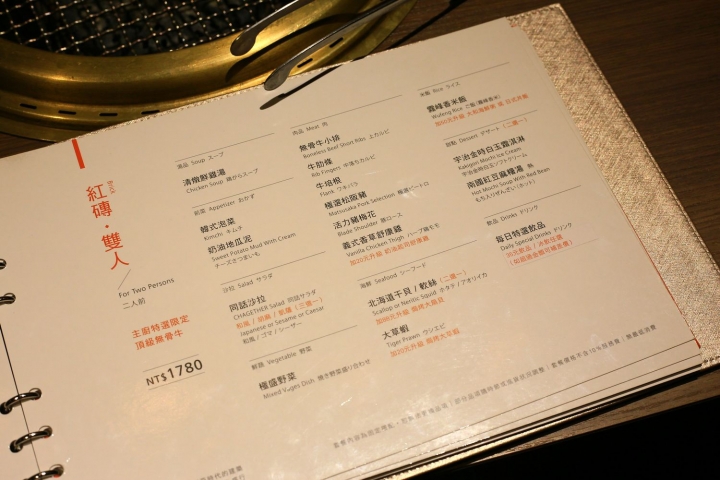 紅磚・雙人
Brick
For Two Persons
二人前
主廚特選限定
頂級無骨牛
NT$1780
湯品 Soup スープ
清燉鮮雞湯
Chicken Soup 鶏がらスープ
前菜 Appetizer おかず
韓式泡菜
Kimchi キムチ
奶油地瓜泥
Sweet Potato Mud With Cream
チーズさつまいも
沙拉 Salad サラダ
同話沙拉
CHAGETHER Salad 同話サラダ
和風 / 胡麻 / 凱薩（三選一）
Japanese or Sesame or Caesar
和風 / ゴマ / シーザー
鮮蔬 Vegetable 野菜
極盛野菜
Mixed Veges Dish 焼き野菜盛り合わせ
肉品 Meat 肉
無骨牛小排
Boneless Beef Short Ribs 上カルビ
牛肋條
Rib Fingers 中落ちカルビ
牛培根
Flank ワキバラ
極選松阪豬
Matsusaka Pork Selection
活力豬梅花
Blade Shoulder 豚ロース
義式香草舒康雞
Vanilla Chicken Thigh ハーブ鶏モモ
海鮮 Seafood シーフード
北海道干貝 / 軟絲（二選一）
Scallop or Neritic Squid ホタテ / アオリイカ
大草蝦
Tiger Prawn ウシエビ
米飯 Rice ライス
霧峰香米飯
Wufeng Rice ご飯(霧峰香米)
甜點 Dessert デザート（二選一）
宇治金時白玉霜淇淋
Kakigori Mochi Ice Cream
宇治金時白玉ソフトクリーム
南國紅豆麻糬湯 熱
Hot Mochi Soup With Red Bean
もち入りぜんざい(ホット)
飲品 Drinks ドリンク
每日特選飲品
Daily Special Drinks ドリンク